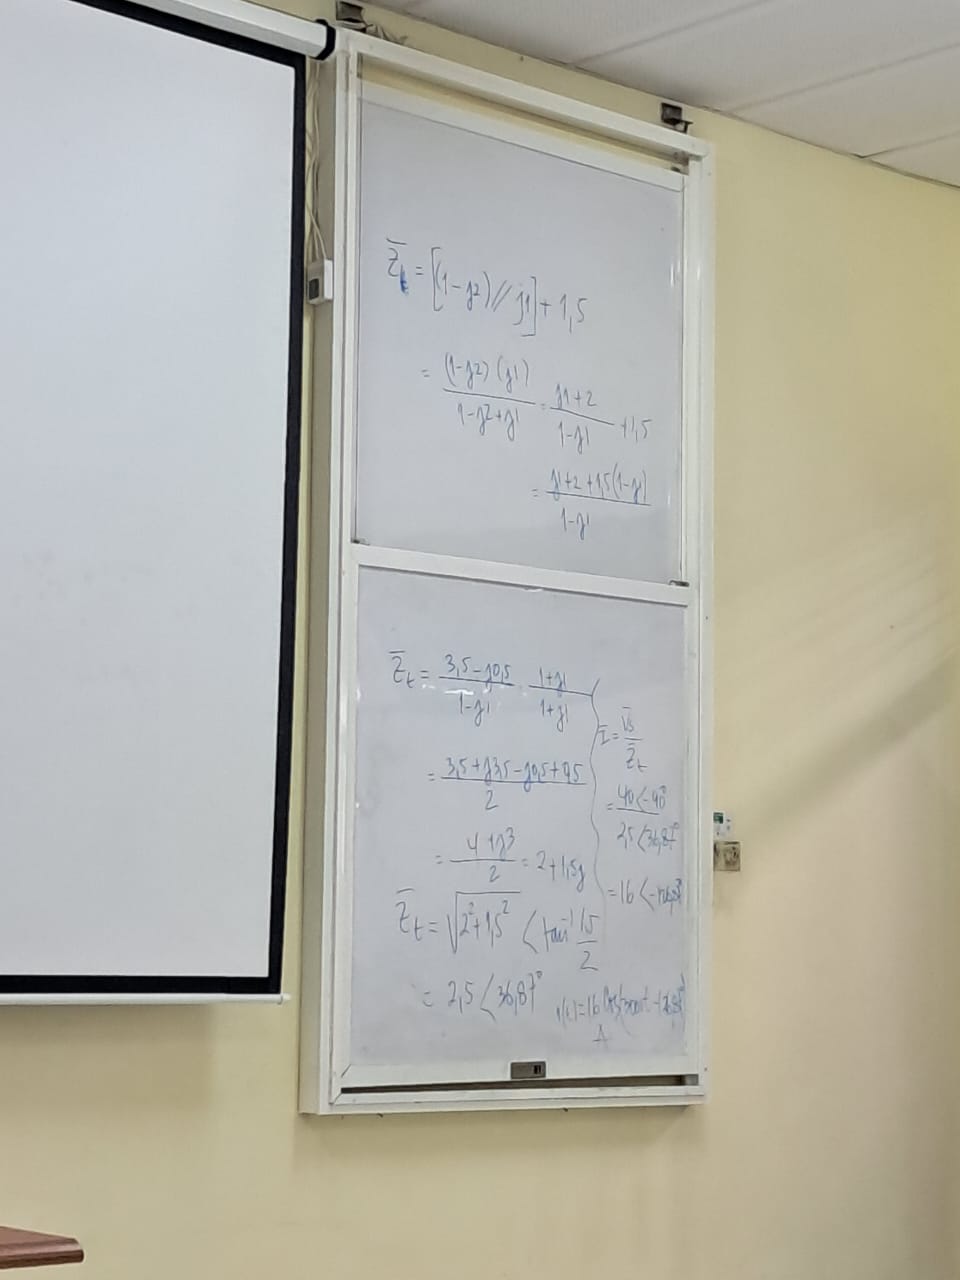 Z̅t = [(1-j2) // j1] + 1,5
= (1-j2)(j1) / 1-j2+j1 = j1+2 / 1-j1 + 1,5
= j1+2+1,5(1-j1) / 1-j1
Z̅t = 3,5-j0,5 / 1-j1 · 1+j1 / 1+j1
= 3,5+j3,5-j0,5+0,5 / 2
= 4+j3 / 2 = 2+1,5j
Z̅t = √2²+1,5² < tan⁻¹ 1,5 / 2
= 2,5 < 36,87°
I̅ = V̅s / Z̅t
= 40 <-90° / 2,5 <36,87°
= 16 <-126,87°
i(t) = 16 Cos(3000t - 126,87°)
A